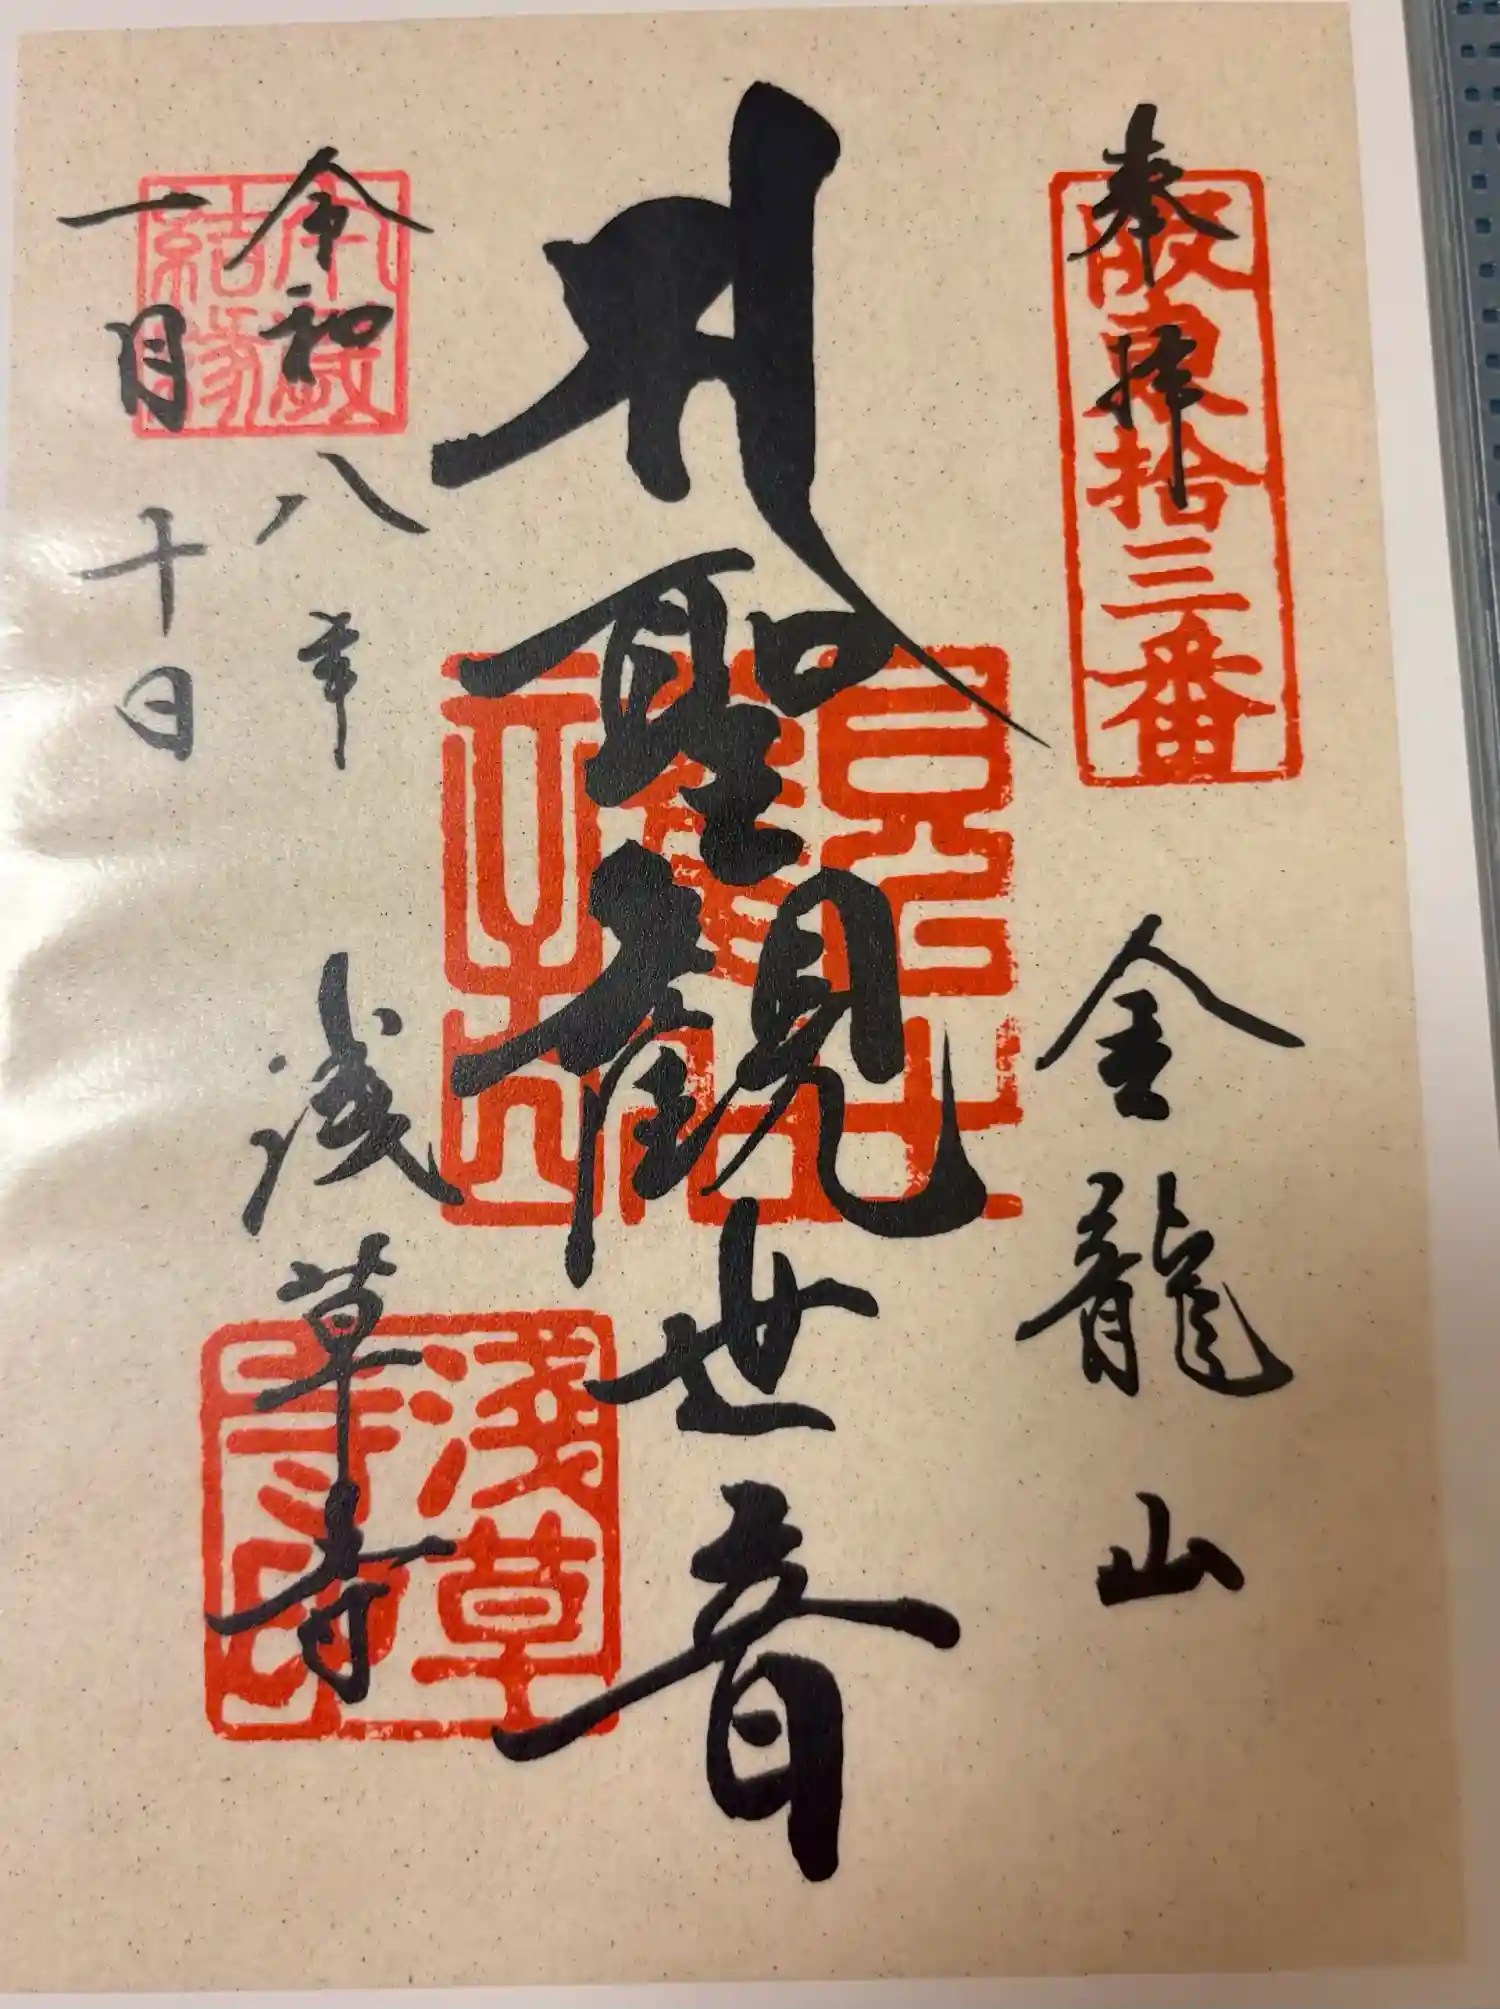 奉拝
阪東拾三番
金龍山
聖観世音
令和八年
一月十日
午歳
結縁
浅草寺
淺草
寺印